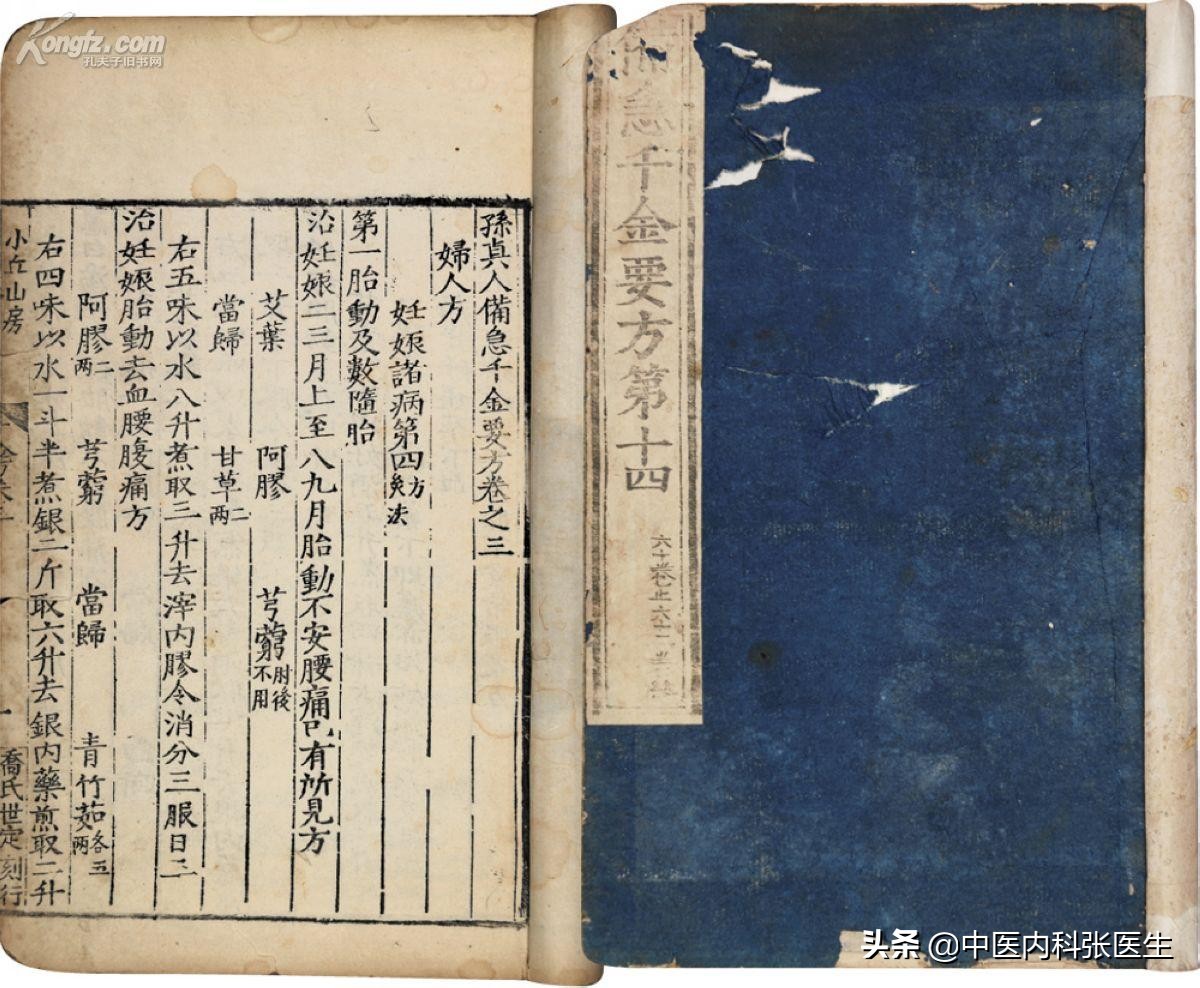 Kongfz.com
孔夫子旧书网
孫真人備急千金要方卷之三
婦人方
妊娠諸病第四
方法
第一胎動及數隨胎
治妊娠二三月上至八九月胎動不安腰痛已有所見方
艾葉 阿膠 芎藭肘後不用
當歸 甘草二兩
右五味以水八升煮取三升去滓內膠令消分三服日二
治妊娠胎動去血腰腹痛方
阿膠二兩 芎藭 當歸 青竹茹各五兩
右四味以水一斗半煮銀二斤取六升去銀內藥煎取二升
小丘山房
喬氏世定刻行
急千金要方第十四
頭条 @中医内科张医生